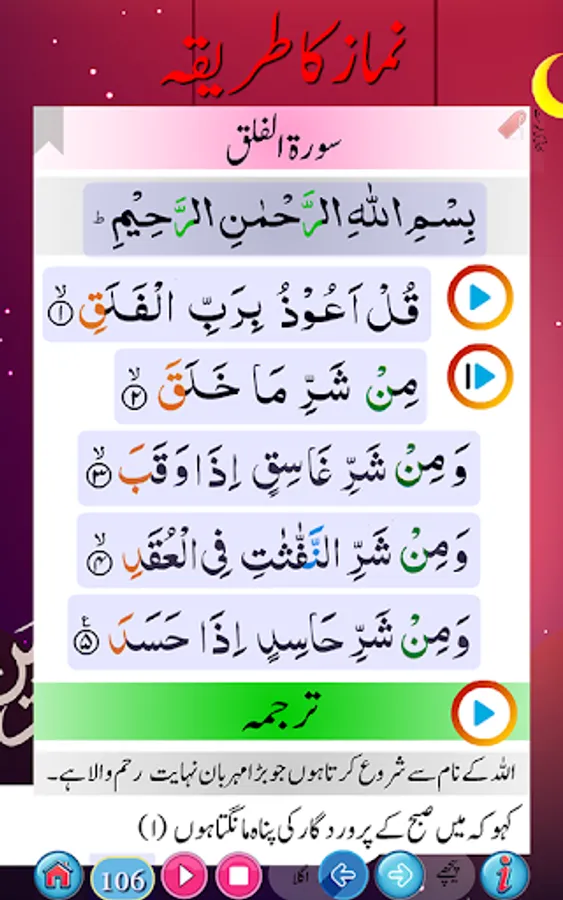 نماز کا طریقہ
سورة الفلق
بِسْمِ اللّٰهِ الرَّحْمٰنِ الرَّحِيْمِ ؕ
قُلْ اَعُوْذُ بِرَبِّ الْفَلَقِ ۙ﴿۱﴾
مِنْ شَرِّ مَا خَلَقَ ۙ﴿۲﴾
وَ مِنْ شَرِّ غَاسِقٍ اِذَا وَقَبَ ۙ﴿۳﴾
وَ مِنْ شَرِّ النَّفّٰثٰتِ فِی الْعُقَدِ ۙ﴿۴﴾
وَ مِنْ شَرِّ حَاسِدٍ اِذَا حَسَدَ ﴿۵﴾
ترجمہ
اللہ کے نام سے شروع کرتا ہوں جو بڑا مہربان نہایت رحم والا ہے۔
کہو کہ میں صبح کے پروردگار کی پناہ مانگتا ہوں (۱)
106 اگلا پیچھے